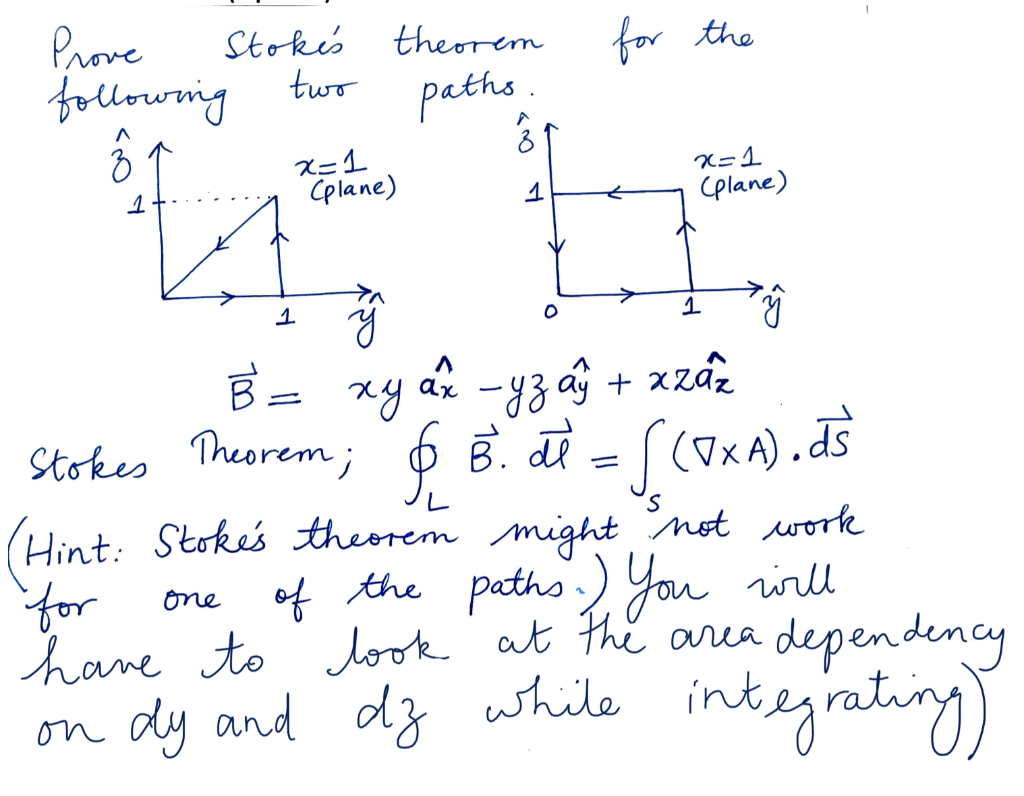 Prove Stoke's theorem for the
following two paths.
ẑ
1
x=1
(plane)
1
ŷ
ẑ
1
x=1
(plane)
0
1
ŷ
B⃗ = xy âx - yz ây + xzâz
Stokes Theorem; ∮L B⃗. dl⃗ = ∫S (∇xA) . ds⃗
(Hint: Stoke's theorem might not work
for one of the paths.) You will
have to look at the area dependency
on dy and dz while integrating)